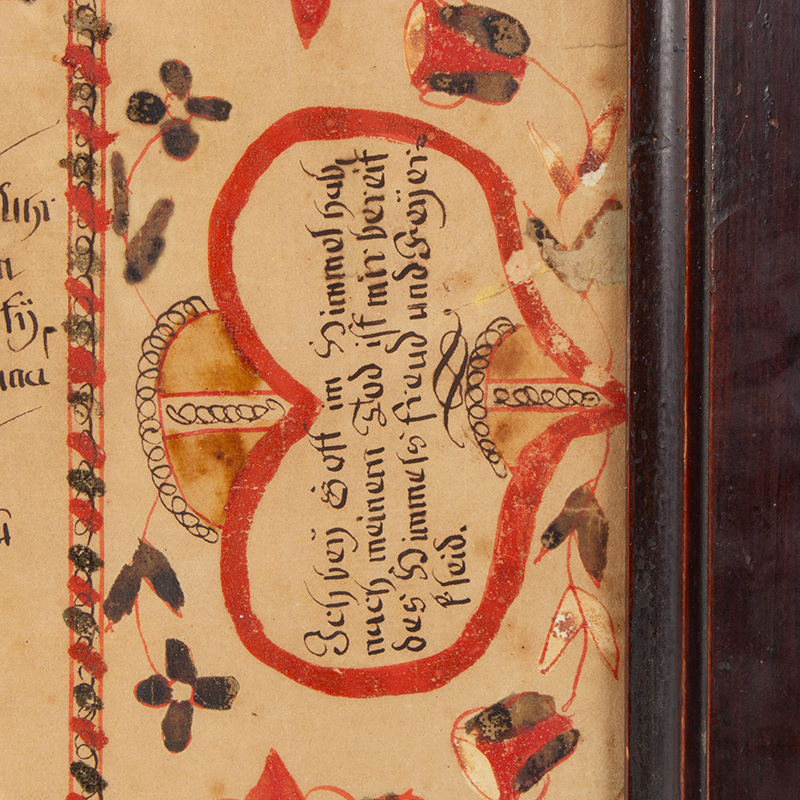 Uhr
Ich beÿ Gott im Himmel hab,
nach meinem Tod ist mir bereit
des Himmels freud und Feÿer-
kleid.